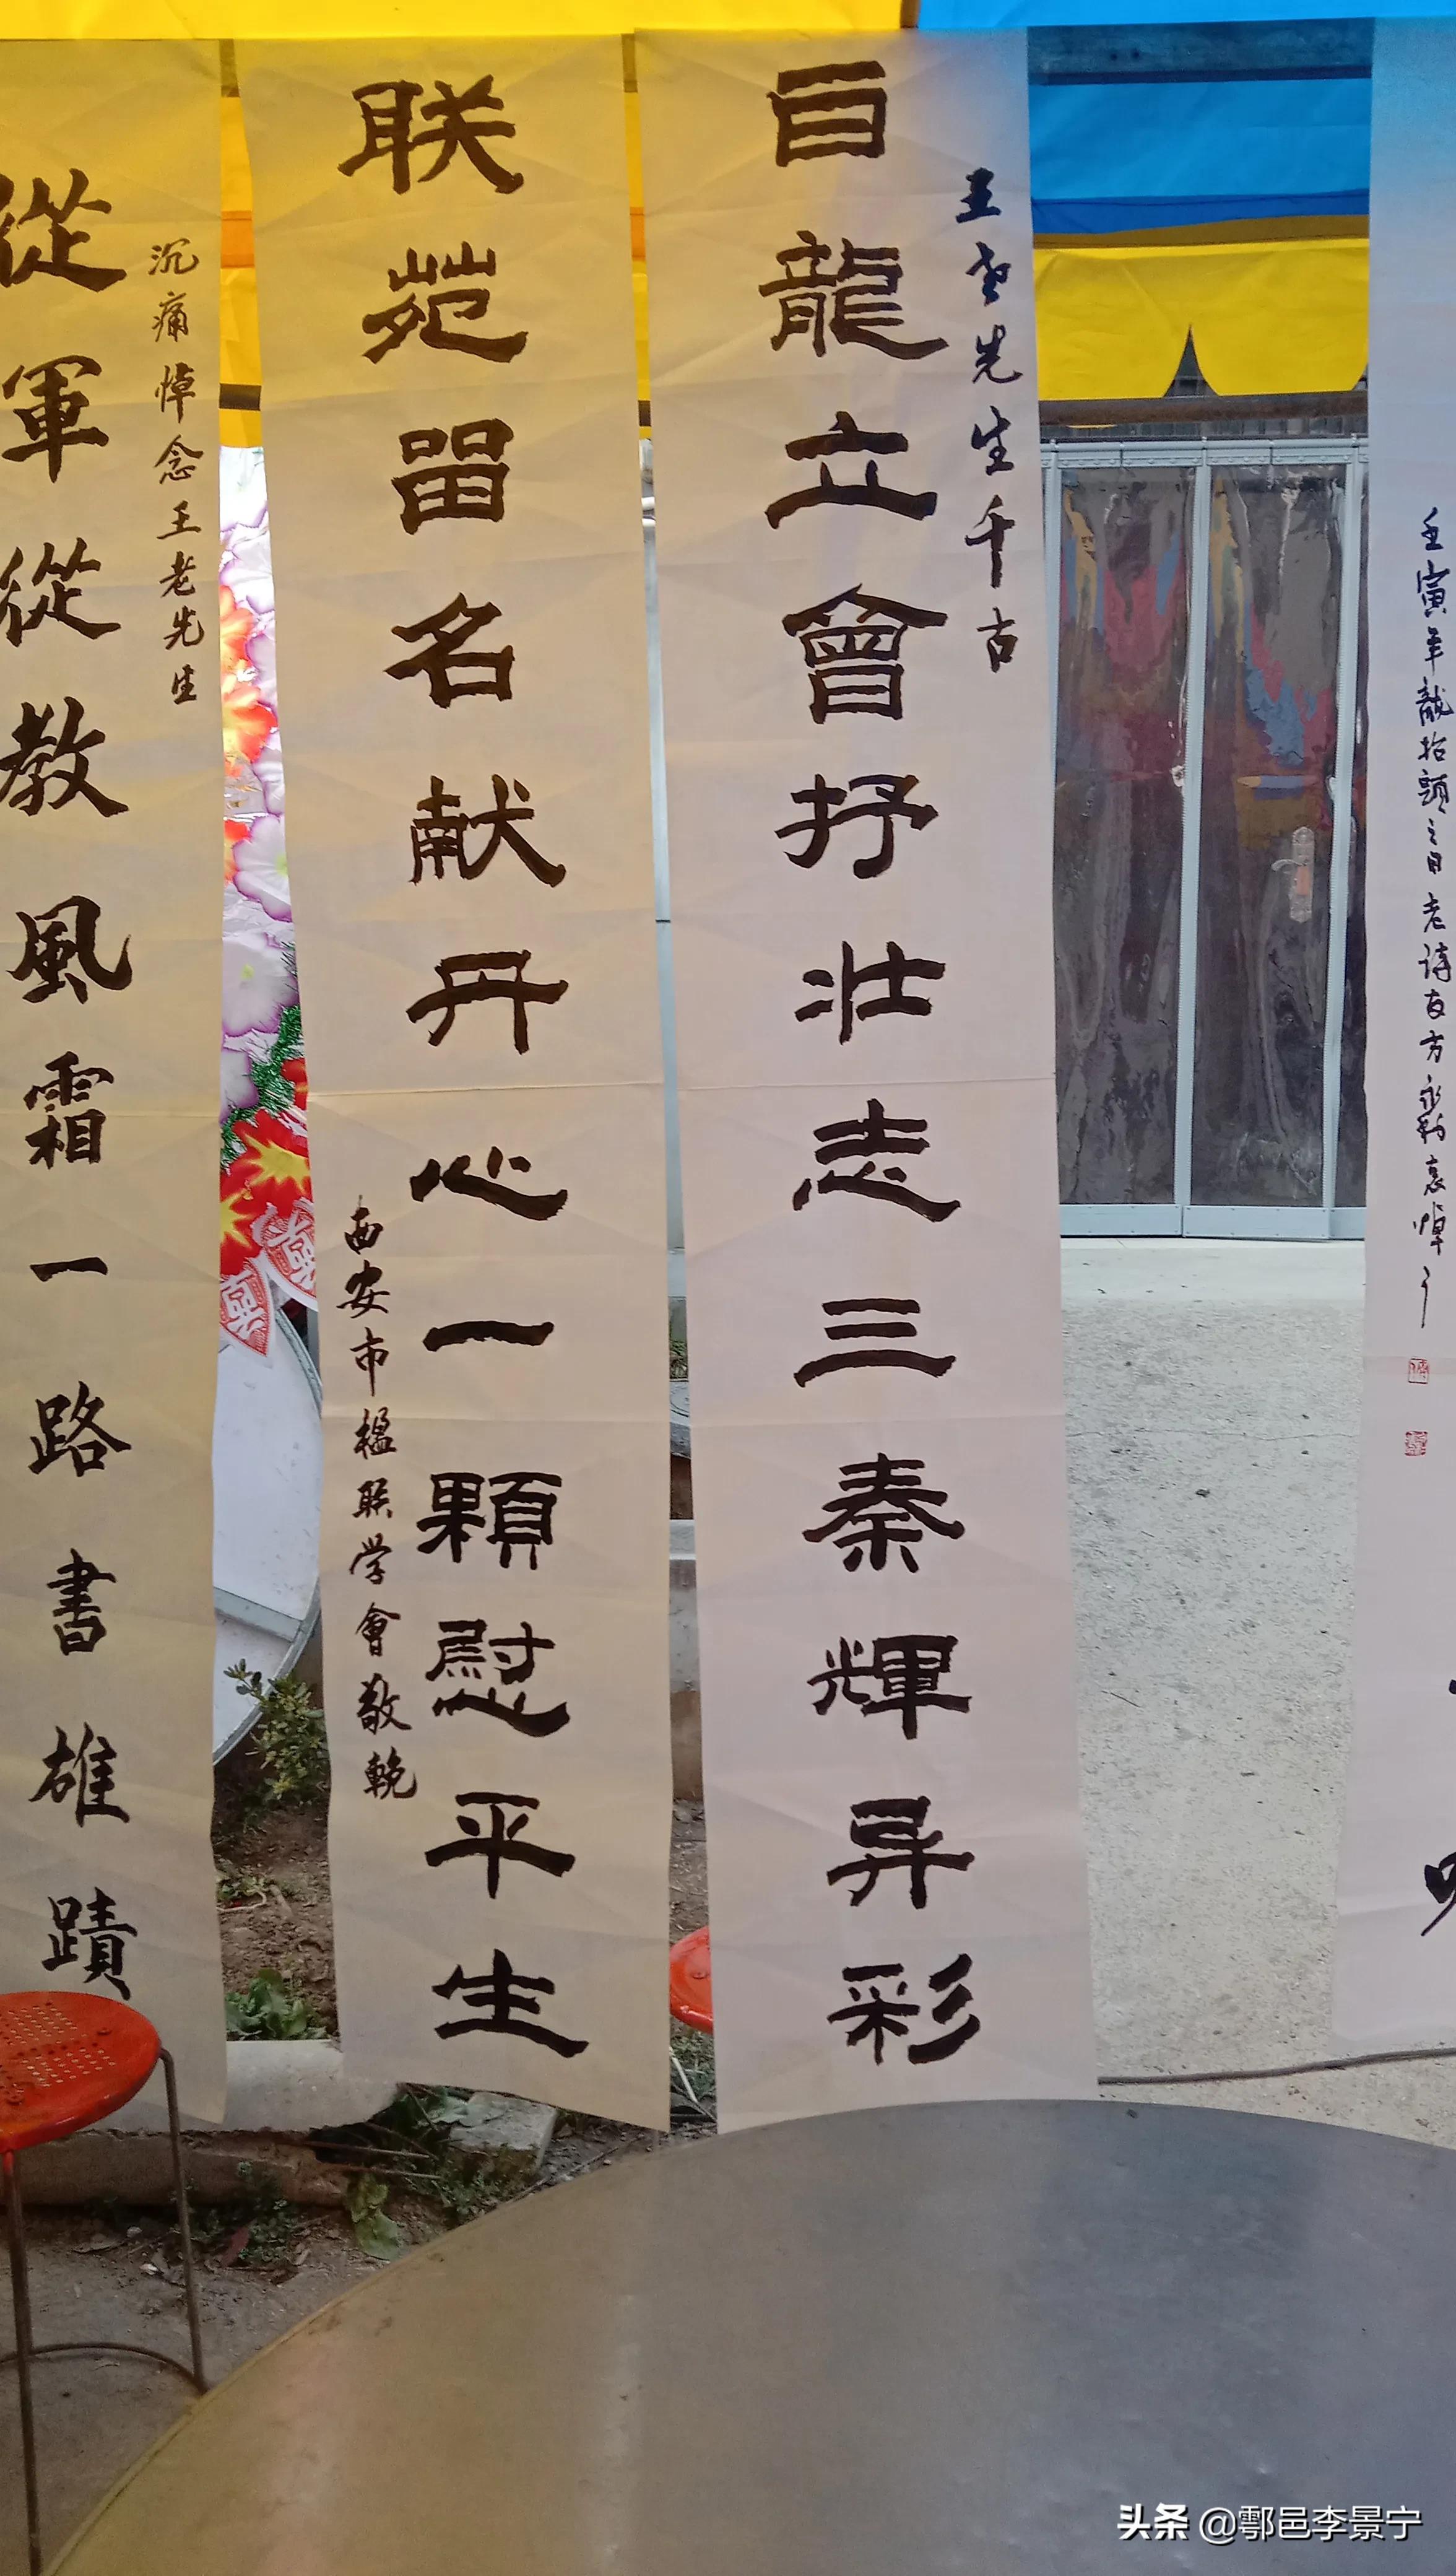 壬寅年龍抬頭之日老诗友方永哀悼
王老先生千古
百龍立會抒壮志三秦輝异彩
联苑留名献丹心一顆慰平生
西安市楹联学會敬輓
沉痛悼念王老先生
從軍從教風霜一路書雄蹟
头条 @鄠邑李景宁